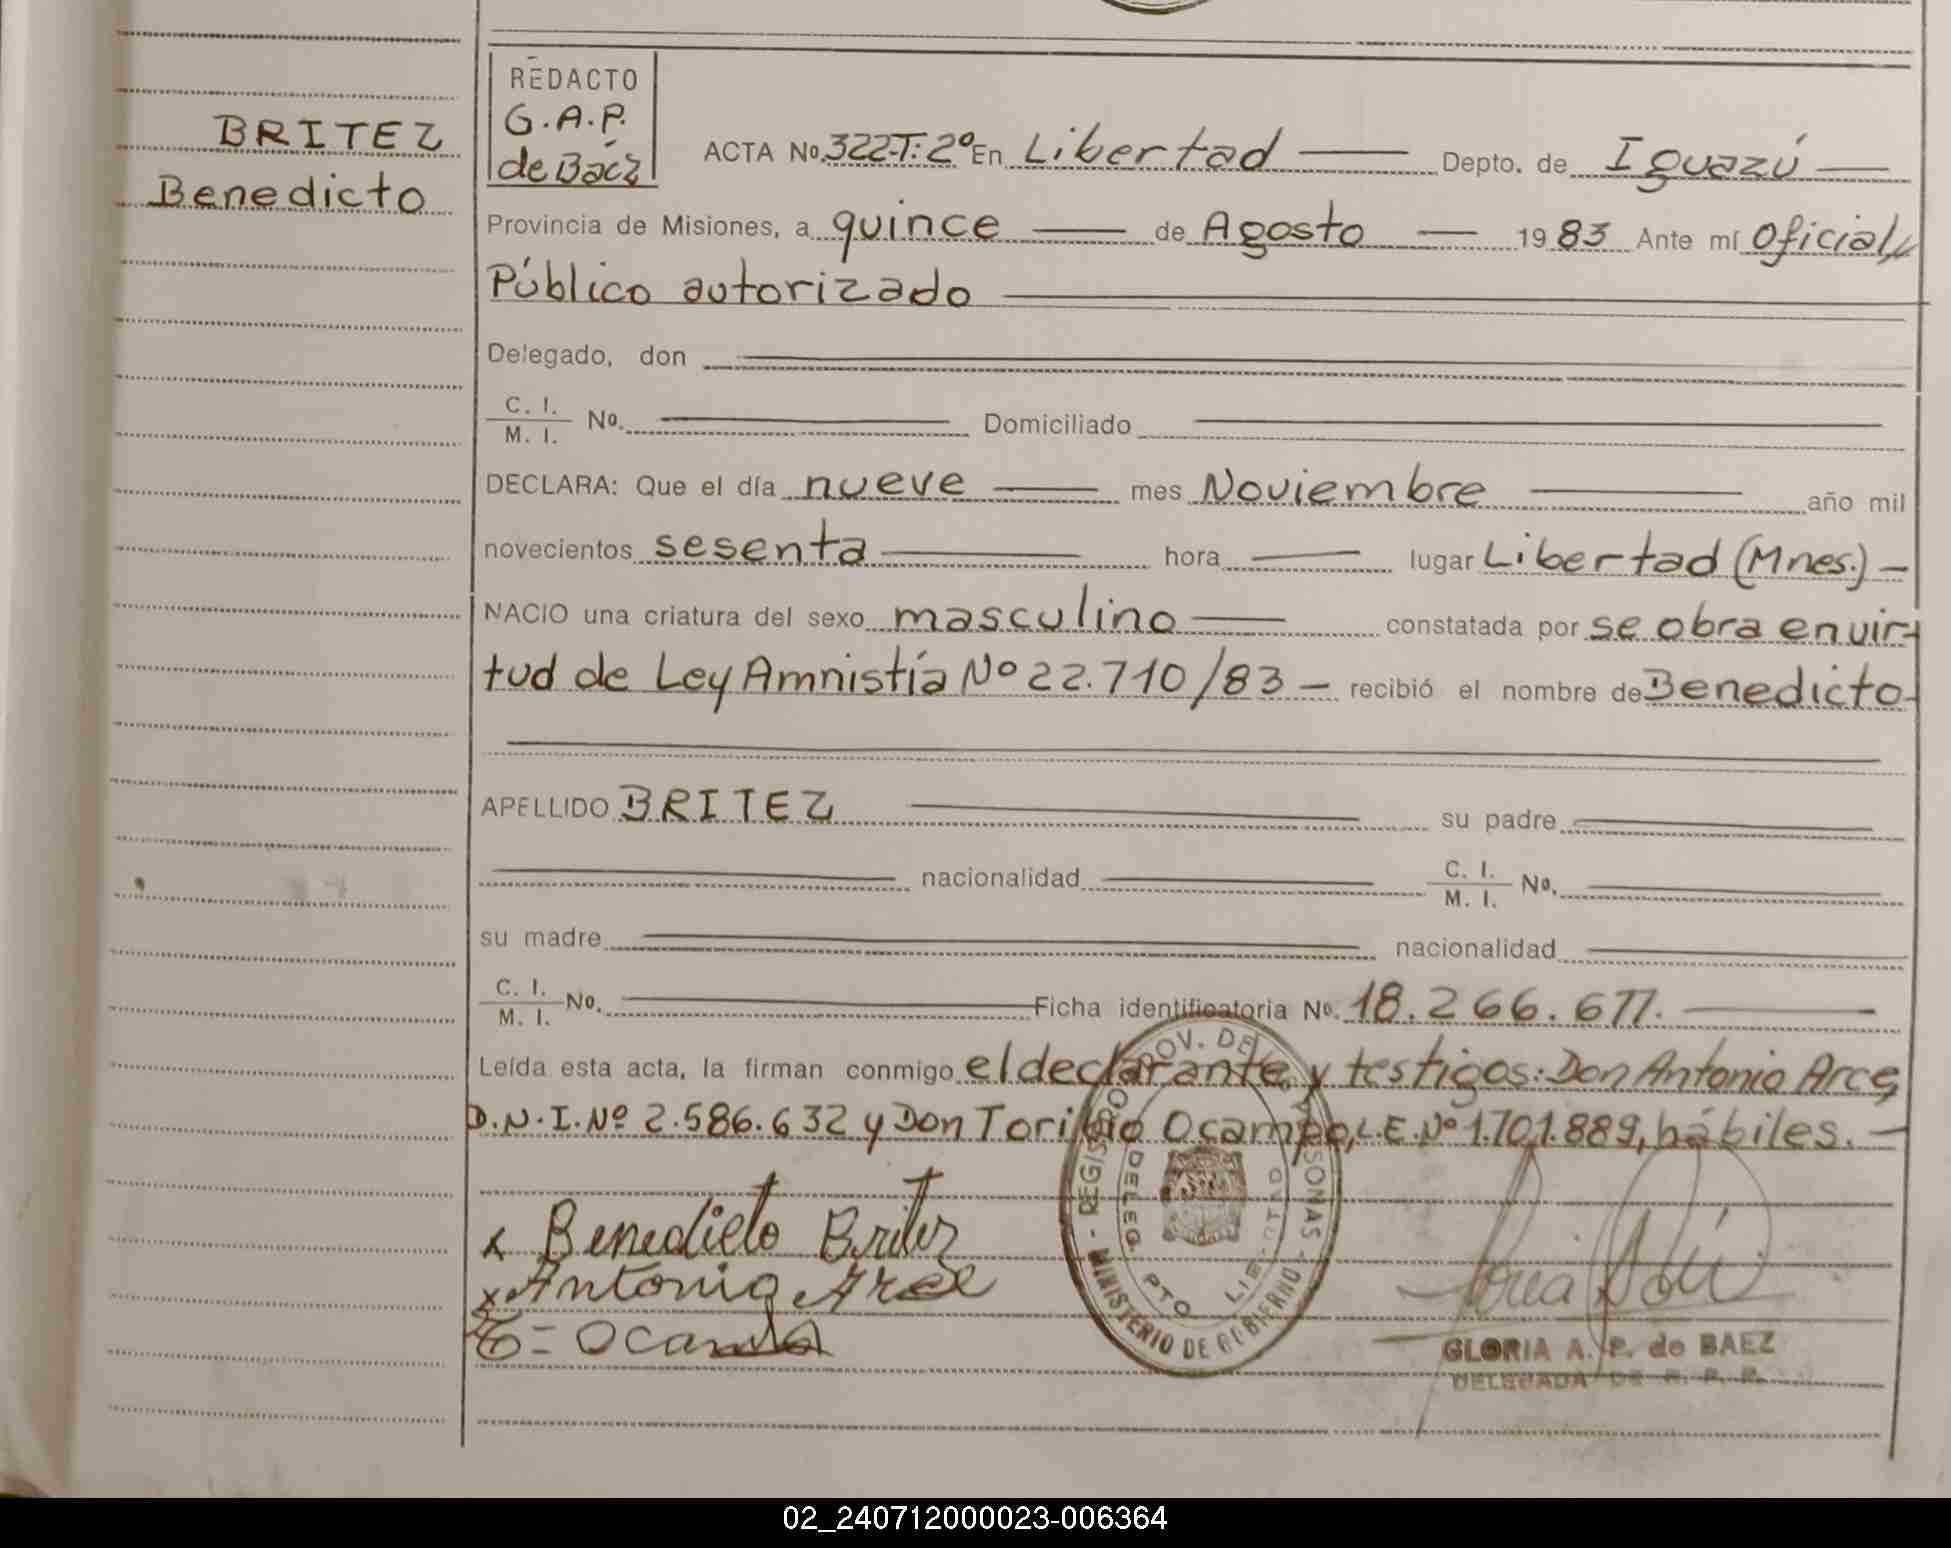 BRITEZ
Benedicto
REDACTO
G.A.P.
de Báez
ACTA No. 322-T: 2º En Libertad — Depto. de Iguazú —
Provincia de Misiones, a quince — de Agosto — 19 83 Ante mí Oficial
Público autorizado
Delegado, don
C. I.
M. I. No. Domiciliado
DECLARA: Que el día nueve — mes Noviembre — año mil
novecientos sesenta — hora — lugar Libertad (Mnes.) —
NACIO una criatura del sexo masculino — constatada por se obra en vir-
tud de Ley Amnistía Nº 22.710/83 — recibió el nombre de Benedicto-
APELLIDO BRITEZ — su padre
nacionalidad C. I.
M. I. No.
su madre nacionalidad
C. I.
M. I. No. Ficha identificatoria No. 18.266.677. —
Leída esta acta, la firman conmigo el declarante y testigos: Don Antonio Arce,
D.N.I. Nº 2.586.632 y Don Toribio Ocampo, L.E. Nº 1.701.889, hábiles. —
x Benedicto Britez
x Antonio Arce
REGISTRO PROV. DE PERSONAS - MINISTERIO DE GOBIERNO -
DELEG. PTO LIBERTAD
GLORIA A. P. de BAEZ
DELEGADA DE R. P. P.
02_240712000023-006364